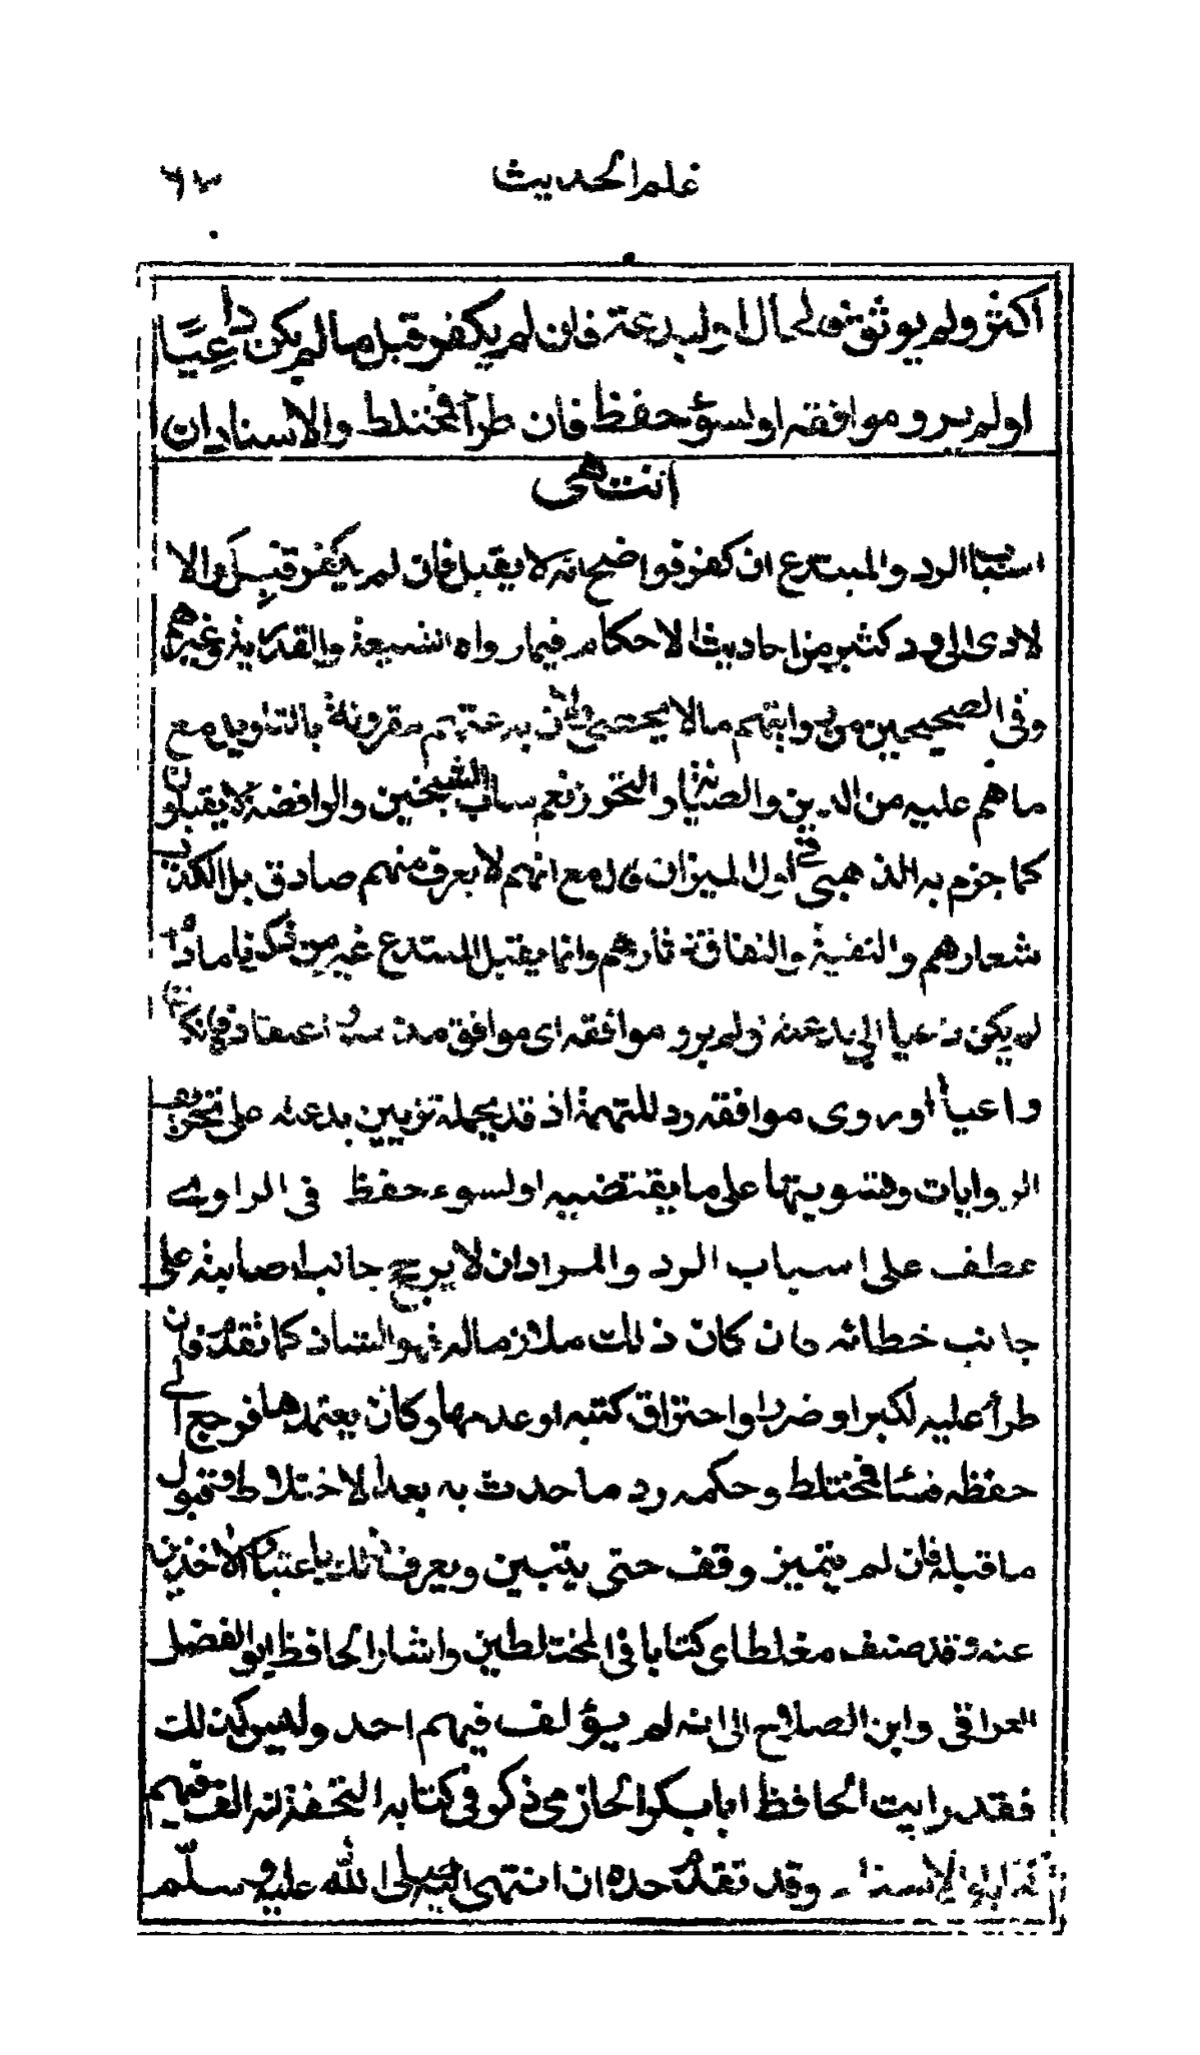 علم الحديث ٦٣
اكثر ولم يوثق فالحال او لبدعة فان لم يكفر قبل مالم يكن داعيا
اولم يرو موافقه او لسوء حفظ فان طرأ فمختلط والاسناد ان
انتهى
اسباب الرد والمبتدع ان كفر فواضح انه لا يقبل فان لم يكفر قبل والا
لادى الى رد كثير من احاديث الاحكام فيما رواه الشيعة والقدرية وغيرهم
وفى الصحيحين من روايتهم مالا يحصى ولان بدعتهم مقرونة بالتاويل مع
ماهم عليه من الدين والصيانة والتحرز نعم ساب الشيخين والرافضة لا يقبلون
كما جزم به الذهبى فى اول الميزان قال مع انهم لا يعرف منهم صادق بل الكذب
شعارهم والتقية والنفاق دثارهم وانما يقبل المبتدع غير من ذكرنا ما دام
لم يكن داعيا الى بدعته ولم يرو موافقه اى موافق مذهبه واعتقاده فان كان
داعيا او روى موافقه رد للتهمة اذ قد يحمله تزيين بدعته على تحريف
الروايات وتسويتها على ما يقتضيه او لسوء حفظ فى الراوى
عطف على اسباب الرد والمراد ان لا يرجح جانب اصابته على
جانب خطائه فان كان ذلك ملازما له فهو الشاذ كما تقدم فان
طرأ عليه لكبر او ضرر او احتراق كتبه او عدمها وكان يعتمدها فرجع الى
حفظه فساء فمختلط وحكمه رد ما حدث به بعد الاختلاط وقبول
ما قبله فان لم يتميز وقف حتى يتبين ويعرف ذلك باعتبار الآخذين
عنه وقد صنف مغلطاى كتابا فى المختلطين واشار الحافظ ابو الفضل
العراقى وابن الصلاح الى انه لم يؤلف فيهم احد وليس كذلك
فقد رايت الحافظ ابا بكر الحازمى ذكر فى كتابه التحفة انه الف فيهم
كتابا والاسناد وقد تقدم حده ان انتهى اليه صلى الله عليه وسلم